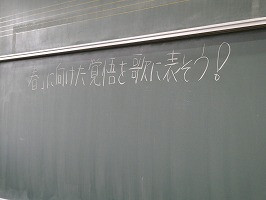 春に向けた覚悟を歌に表そう!